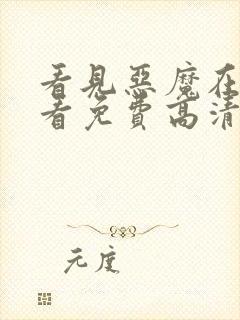 看見惡魔在
看免費高清
元度